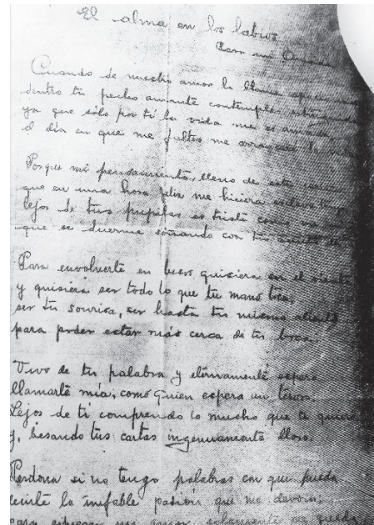 El alma en los labios
Para mi
Cuando de nuestro amor la llama apasionada
dentro tu pecho amante contemples
ya que sólo por ti la vida me es amada
el día en que me faltes me arrancaré la
Porque mi pensamiento, lleno de este
que en una hora feliz me hiciera esclavo
lejos de tus pupilas es triste como
que se duerme soñando con tu acento de
Para envolverte en besos quisiera ser el viento
y quisiera ser todo lo que tu mano toca;
ser tu sonrisa, ser hasta tu mismo aliento
para poder estar más cerca de tu boca.
Vivo de tu palabra y eternamente espero
llamarte mía, como quien espera un tesoro.
Lejos de ti comprendo lo mucho que te quiero
y, besando tus cartas ingenuamente lloro.
Perdona si no tengo palabras con que pueda
decirte la inefable pasión que me devora;
para expresar mi amor solamente me queda